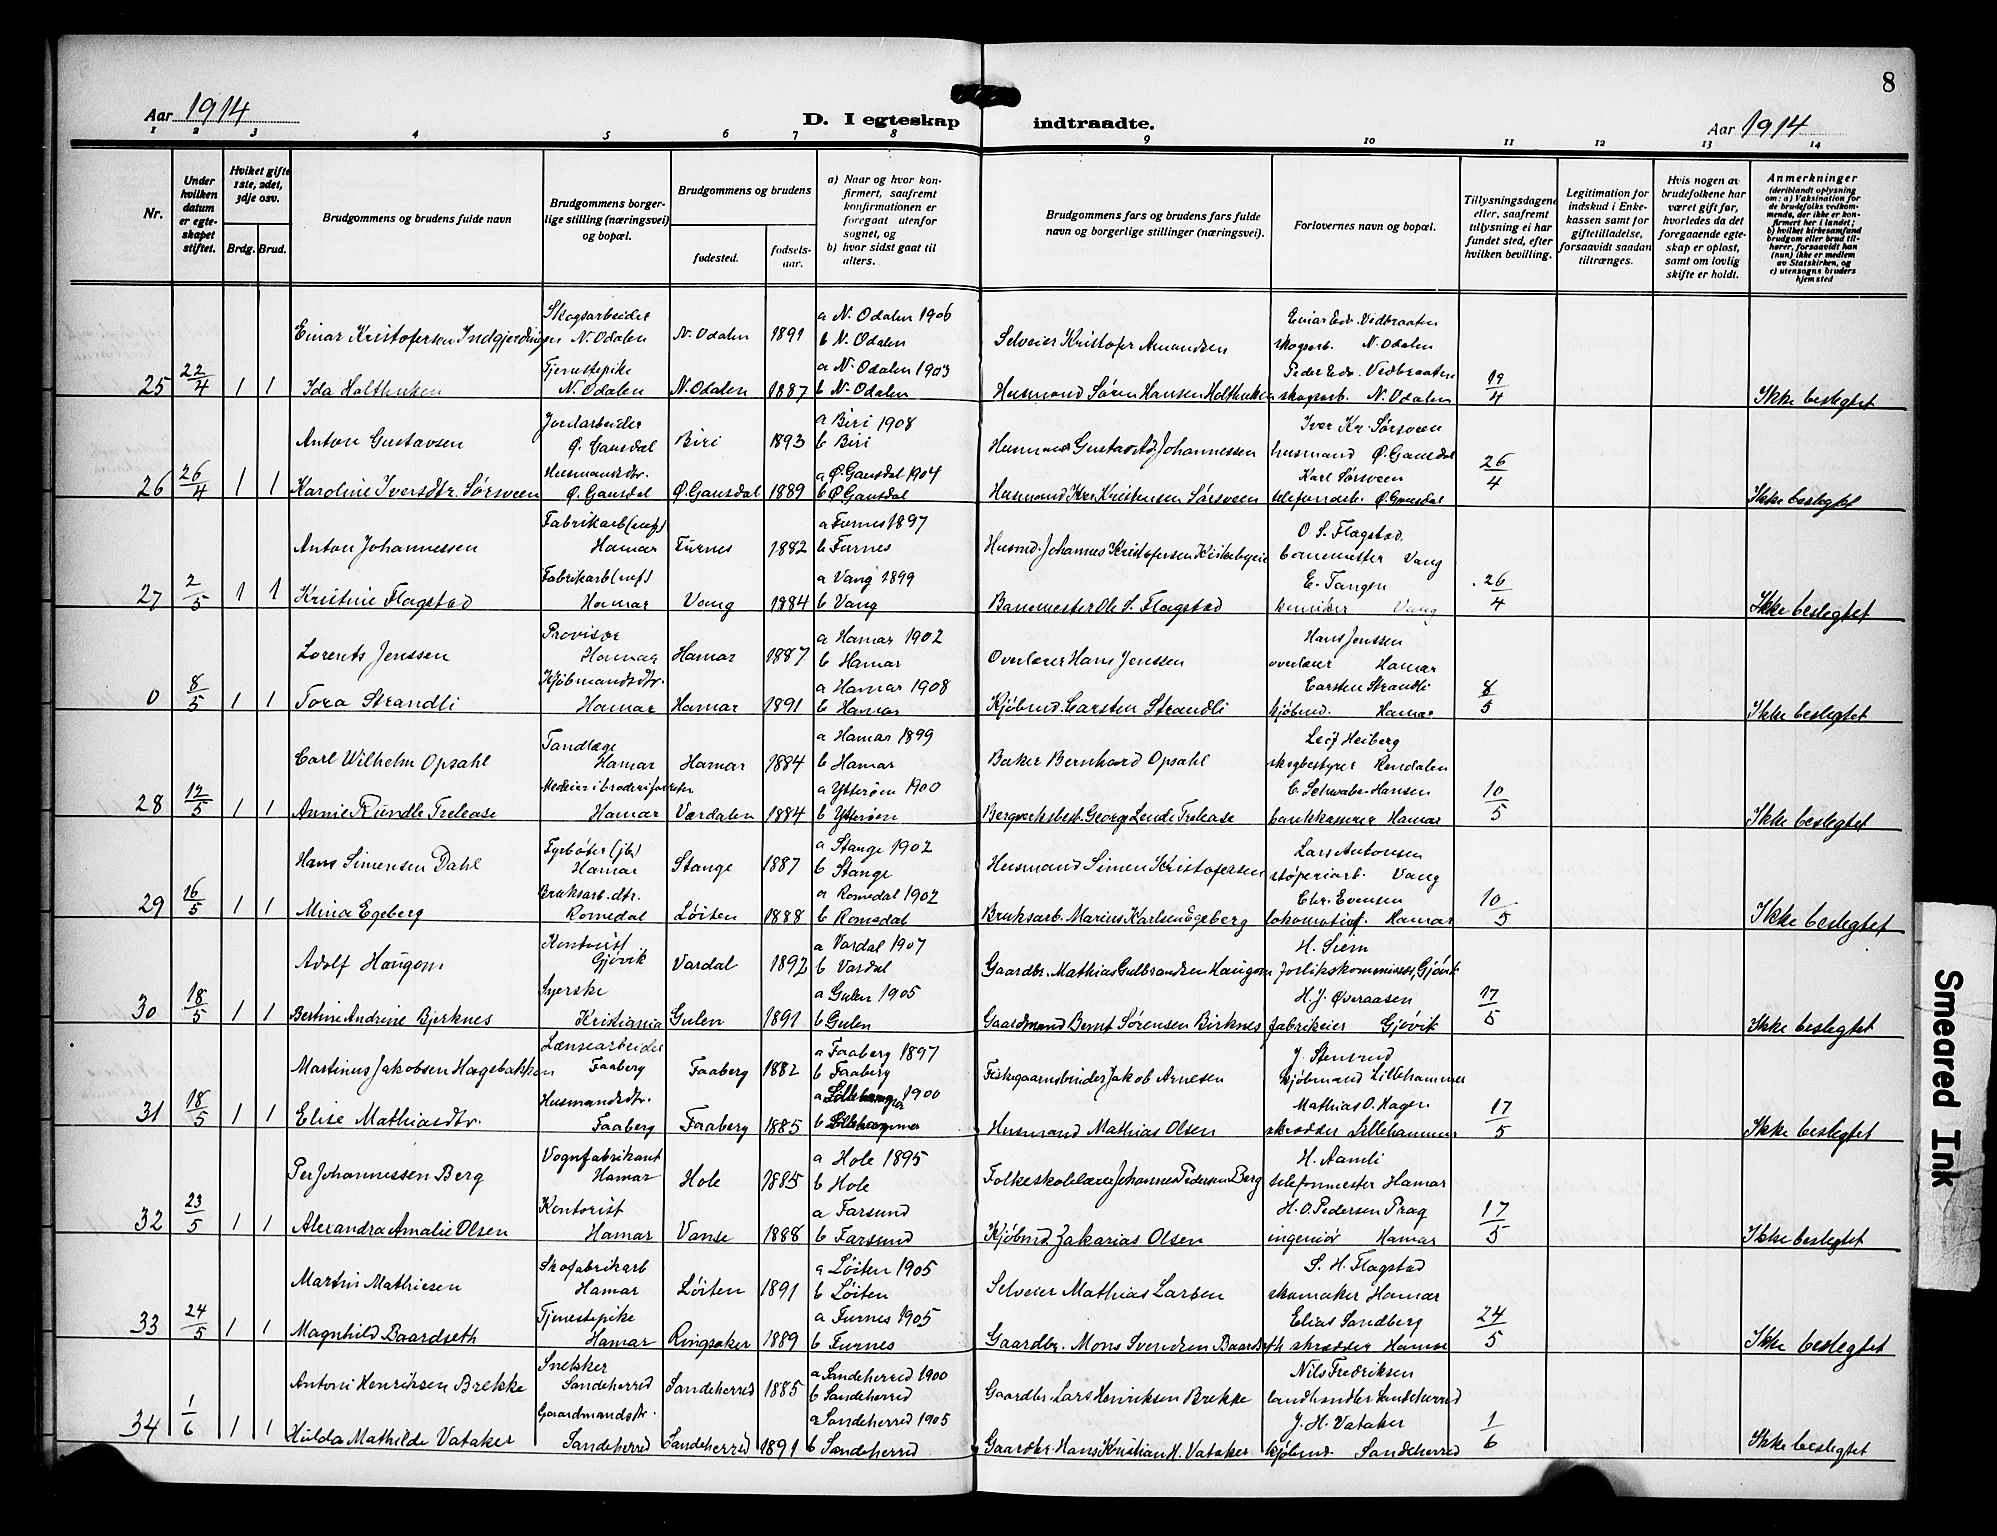 8
Aar 1914
D. I egteskap indtraadte.
Aar 1914
1 2 3 4 5 6 7 8 9 10 11 12 13 14
Nr.
Under hvilken datum er egteskapet stiftet.
Hviket gifte 1ste, 2det, 3dje osv.
Brdg. Brud.
Brudgommens og brudens fulde navn
Brudgommens borgerlige stilling (næringsvei) og bopæl.
Brudgommens og brudens
fødested.
fødselsaar.
a) Naar og hvor konfirmert, saafremt konfirmationen er foregaat utenfor sognet, og
b) hvor sidst gaat til alters.
Brudgommens fars og brudens fars fulde navn og borgerlige stillinger (næringsvei).
Forlovernes navn og bopæl.
Tillysningsdagene eller, saafremt tillysning ei har fundet sted, efter hvilken bevilling.
Legitimation for indskud i Enkekassen samt for giftetilladelse, forsaavidt saadan tiltrænges.
Hvis nogen av brudefolkene har været gift før, hvorledes da det foregaaende egteskap er opløst, samt om lovlig skifte er holdt.
Anmerkninger (deriblandt oplysning om: a) Vaksination for de brudefolks vedkommende, der ikke er konfirmert her i landet; b) hvilket kirkesamfund brudgom eller brud tilhører, forsaavidt han (hun) ikke er medlem av Statskirken, og c) utensogns bruders hjemsted
Einar Kristofersen Indgjerdingen Skogsarbeider N. Odalen N. Odalen 1891 a N. Odalen 1906 b N. Odalen Selveier Kristofer Amundsen Einar Edv. Vedbraaten skogsarb. N. Odalen
25 22/4 1 1 Ida Holthuken Tjenestepike N. Odalen N. Odalen 1887 a N. Odalen 1903 b N. Odalen Husmand Søren Hansen Holthuken Peder Edv. Vedbraaten skogsarb. N. Odalen 19/4 Ikke beslegtet
Anton Gustavsen Jordarbeider Ø. Gausdal Biri 1893 a Biri 1908 b Biri Husmand Gustav Ad. Johannessen Iver Kr. Sørsveen husmand Ø. Gausdal
26 26/4 1 1 Karoline Iversdtr. Sørsveen Husmandsdtr. Ø. Gausdal Ø. Gausdal 1889 a Ø. Gausdal 1904 b Ø. Gausdal Husmand Kristensen Sørsveen Karl Sørsveen telefonarb. Ø. Gausdal 26/4 Ikke beslegtet
Anton Johannessen Fabrikarb. Hamar Furnes 1882 a Furnes 1897 b Furnes Husmd. Johannes Kristofersen Kirkebyeie O. S. Flagstad banemester Vang
27 2/5 1 1 Kristine Flagstad Fabrikarb. Hamar Vang 1884 a Vang 1899 b Vang Banemester Ole S. Flagstad E. Tangen Vang 26/4 Ikke beslegtet
Lorents Jenssen Provisor Hamar Hamar 1887 a Hamar 1902 b Hamar Overlærer Hans Jenssen Hans Jenssen overlærer Hamar
0 8/5 1 1 Tora Strandli Kjøbmandsdtr. Hamar Hamar 1891 a Hamar 1908 b Hamar Kjøbmd. Carsten Strandli Carsten Strandli kjøbmd. Hamar 8/5 Ikke beslegtet
Carl Wilhelm Opsahl Tandlæge Hamar Hamar 1884 a Hamar 1899 b Hamar Baker Bernhard Opsahl Leif Heiberg skogbestyrer Rendalen
28 12/5 1 1 Annie Rundle Trelease Medeier i broderiforretn. Hamar Værdalen 1884 a Ytterøen 1900 b Ytterøen Bergverksbest. George Trelease C. Schwabe-Hansen bankkaserer Hamar 10/5 Ikke beslegtet
Hans Simensen Dahl Fyrbøter (jb) Hamar Stange 1887 a Stange 1902 b Stange Husmand Simen Kristofersen Lars Antonsen støperiarb. Vang
29 16/5 1 1 Mina Egeberg Bruksarb. dtr. Romedal Løiten 1888 a Romedal 1902 b Romedal Bruksarb. Marius Karlsen Egeberg Chr. Evensen lokomotivf. Hamar 10/5 Ikke beslegtet
Adolf Haugom Kontorist Gjøvik Vardal 1892 a Vardal 1907 b Vardal Gaardbr. Mathias Gulbrandsen Haugom H. Siem forlikskommissær, Gjøvik
30 18/5 1 1 Bertine Andrine Bjerknes Syerske Kristiania Gulen 1891 a Gulen 1905 b Gulen Gaardmand Bernt Sørensen Birknes H. J. Øveraasen fabrikeier Gjøvik 17/5 Ikke beslegtet
Martinus Jakobsen Hagebakken Lænsearbeider Faaberg Faaberg 1882 a Faaberg 1897 b Faaberg Fiskegaarnsbinder Jakob Arnesen J. Stensrud kjøbmand Lillehammer
31 18/5 1 1 Elise Mathiasdtr. Husmandsdtr. Faaberg Faaberg 1885 a Lillehammer 1900 b Lillehammer Husmand Mathias Olsen Mathias O. Hagen skrædder Lillehammer 17/5 Ikke beslegtet
Per Johannessen Berg Vognfabrikant Hamar Hole 1885 a Hole 1895 b Hole Folkeskolelærer Johannes Pedersen Berg H. Aamli telefonmester Hamar
32 23/5 1 1 Alexandra Amalie Olsen Kontorist Hamar Vanse 1888 a Farsund b Farsund Kjøbmd Zakarias Olsen H. O. Pedersen Prag ingeniør Hamar 17/5 Ikke beslegtet
Martin Mathiesen Skofabrikarb Hamar Løiten 1891 a Løiten 1905 b Løiten Selveier Mathias Larsen S. H. Flagstad skomaker Hamar
33 24/5 1 1 Magnhild Baardseth Tjenestepike Hamar Ringsaker 1889 a Furnes 1905 b Furnes Gaardbr. Mons Svendsen Baardseth Elias Sandberg skrædder Hamar 24/5 Ikke beslegtet
Anton Henriksen Brekke Snekker Sandeherred Sandeherred 1885 a Sandeherred 1900 b Sandeherred Gaardbr. Lars Henriksen Brekke Nils Fredriksen landhandler Sandeherred
34 1/6 1 1 Hulda Mathilde Vataker Gaardmandsdtr. Sandeherred Sandeherred 1891 a Sandeherred 1905 b Sandeherred Gaardbr. Hans Kristian H. Vataker J. H. Vataker kjøbmd. Sandeherred 1/6 Ikke beslegtet
Smeared Ink